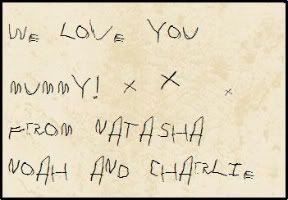 WE LOVE YOU
MUMMY! x x x
FROM NATASHA
NOAH AND CHARLIE